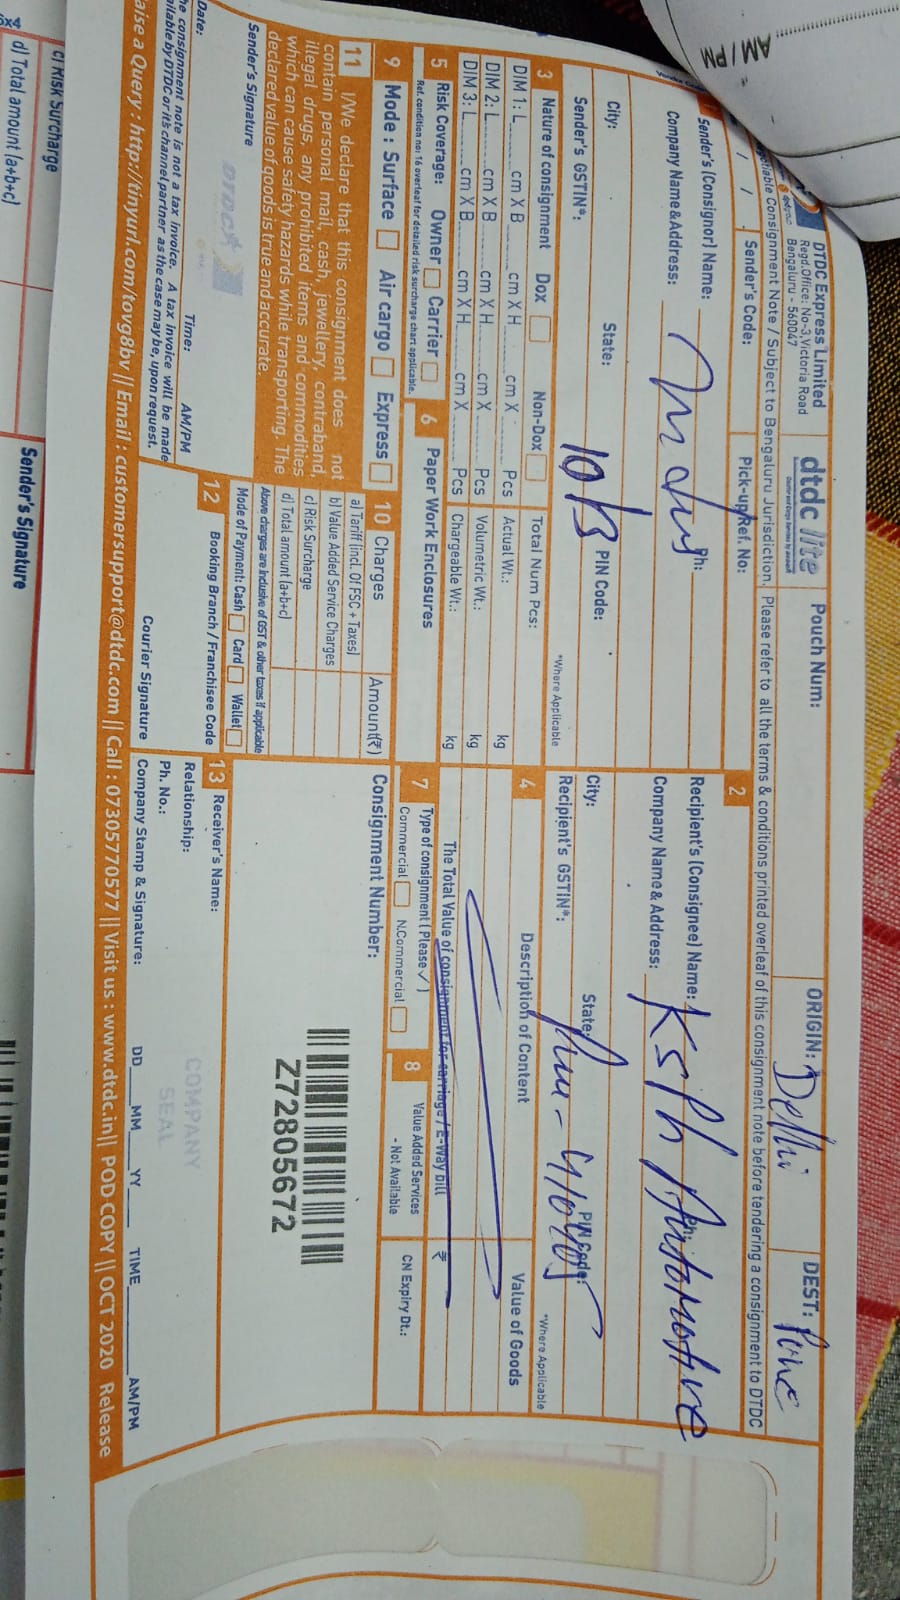 AM / PM
DTDC Express Limited
Regd.Office: No-3,Victoria Road
Bengaluru - 560047
dtdc lite
Pouch Num:
ORIGIN: Delhi
DEST: Pune
Consignment Note / Subject to Bengaluru Jurisdiction. Please refer to all the terms & conditions printed overleaf of this consignment note before tendering a consignment to DTDC
/ / Sender's Code:
Pick-up Ref. No:
Sender's (Consignor) Name:
Company Name & Address:
Indus
Ph:
10/3
City:
State:
PIN Code:
Sender's GSTIN*:
*Where Applicable
2
Recipient's (Consignee) Name:
Company Name & Address:
KSPh Automotive
Ph:
City:
State:
PIN Code:
Recipient's GSTIN*:
*Where Applicable
3 Nature of consignment Dox Non-Dox Total Num Pcs:
DIM 1: L cm X B cm X H cm X Pcs Actual Wt.: kg
DIM 2: L cm X B cm X H cm X Pcs Volumetric Wt.: kg
DIM 3: L cm X B cm X H cm X Pcs Chargeable Wt.: kg
4 Description of Content Value of Goods
The Total Value of consignment for carriage / E-way bill ₹
5 Risk Coverage: Owner Carrier
Ref. condition no: 16 overleaf for detailed risk surcharge chart applicable.
6 Paper Work Enclosures
7 Type of consignment ( Please ✓ )
Commercial N.Commercial
8 Value Added Services
- Not Available
CN Expiry Dt.:
9 Mode : Surface Air cargo Express
10 Charges Amount(₹)
a) Tariff (incl. Of FSC + Taxes)
b) Value Added Service Charges
c) Risk Surcharge
d) Total amount (a+b+c)
Above charges are inclusive of GST & other taxes if applicable
Mode of Payment: Cash Card Wallet
Consignment Number:
Z72805672
11 I/We declare that this consignment does not
contain personal mail, cash, jewellery, contraband,
illegal drugs, any prohibited items and commodities
which can cause safety hazards while transporting. The
declared value of goods is true and accurate.
Sender's Signature
Date:
Time:
AM/PM
The consignment note is not a tax invoice. A tax invoice will be made
available by DTDC or it's channel partner as the case may be, upon request.
12 Booking Branch / Franchisee Code
Courier Signature
13 Receiver's Name:
Relationship:
Ph. No.:
Company Stamp & Signature:
COMPANY
SEAL
DD MM YY TIME AM/PM
Raise a Query : http://tinyurl.com/tovg8bv || Email : customersupport@dtdc.com || Call : 07305770577 || Visit us : www.dtdc.in|| POD COPY || OCT 2020 Release
c) Risk Surcharge
d) Total amount (a+b+c)
Sender's Signature